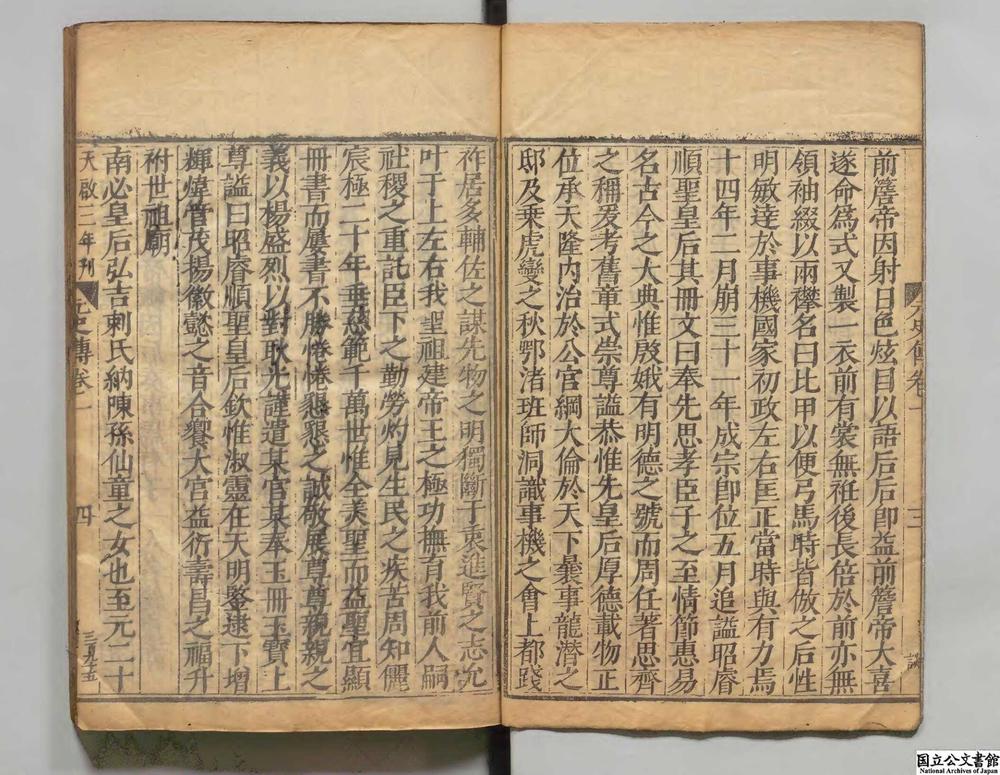 前簷帝因射日色炫目以語后后卽益前簷帝大喜
遂命爲式又製一衣前有裳無袵後長倍於前亦無
領袖綴以兩襻名曰比甲以便弓馬時皆倣之后性
明敏達於事機國家初政左右匡正當時與有力焉
十四年二月崩三十一年成宗卽位五月追謚昭睿
順聖皇后其冊文曰奉先思孝臣子之至情節惠易
名古今之大典惟殷娥有明德之號而周任著思齊
之稱爰考舊章式崇尊謚恭惟先皇后厚德載物正
位承天隆內治於公宮綱大倫於天下曩事龍潛之
邸及乗虎變之秋鄂渚班師洞識事機之會上都踐
三
祚居多輔佐之謀先物之明獨斷于衷進賢之志允
叶于上左右我聖祖建帝王之極功撫育我前人嗣
社稷之重託臣下之勤勞灼見生民之疾苦周知儷
宸極二十年垂慈範千萬世惟全美聖而益聖宜顯
冊書而屢書不勝惓惓懇懇之誠敬展尊尊親親之
義以揚盛烈以對耿光謹遣某官某奉玉冊玉寶上
尊謚曰昭睿順聖皇后欽惟淑靈在天明鑒逮下增
輝煒管茂揚徽懿之音合饗大宮益衍壽昌之福升
祔世祖廟
南必皇后弘吉剌氏納陳孫仙童之女也至元二十
天啟三年刊 元史傳卷一 四
国立公文書館
National Archives of Japan